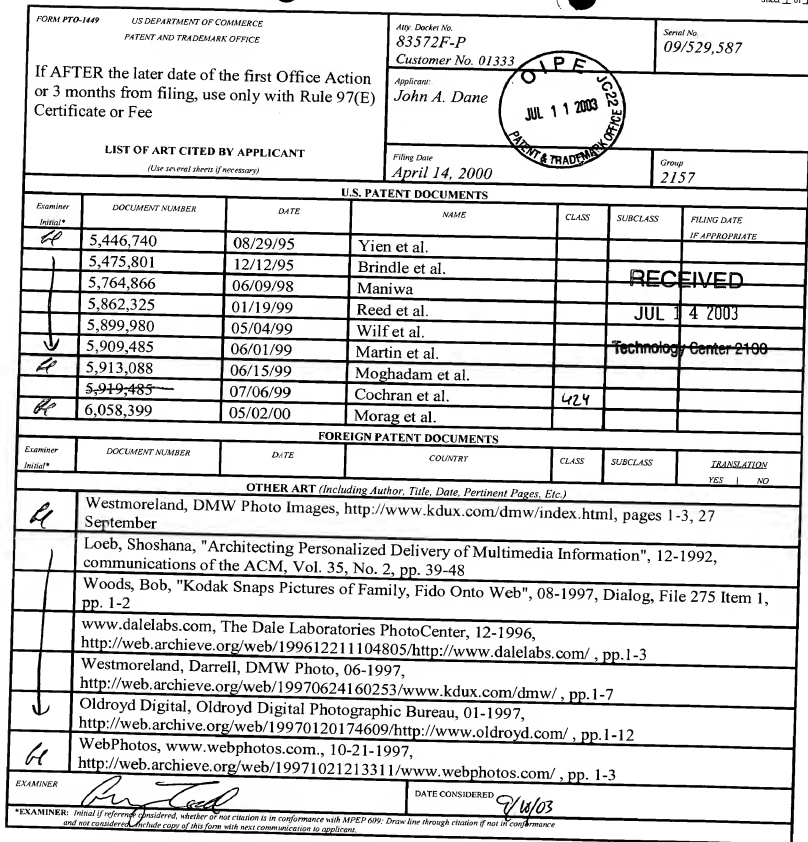 FORM PTO-1449 US DEPARTMENT OF COMMERCE
PATENT AND TRADEMARK OFFICE
If AFTER the later date of the first Office Action
or 3 months from filing, use only with Rule 97(E)
Certificate or Fee
LIST OF ART CITED BY APPLICANT
(Use several sheets if necessary)
Atty. Docket No.
83572F-P
Customer No. 01333
Serial No.
09/529,587
Applicant:
John A. Dane
OIPE JC22
JUL 11 2003
PATENT & TRADEMARK OFFICE
Filing Date
April 14, 2000
Group
2157
U.S. PATENT DOCUMENTS
Examiner Initial* DOCUMENT NUMBER DATE NAME CLASS SUBCLASS FILING DATE IF APPROPRIATE
5,446,740 08/29/95 Yien et al.
5,475,801 12/12/95 Brindle et al.
5,764,866 06/09/98 Maniwa
5,862,325 01/19/99 Reed et al.
5,899,980 05/04/99 Wilf et al.
5,909,485 06/01/99 Martin et al.
5,913,088 06/15/99 Moghadam et al.
5,919,485 07/06/99 Cochran et al. 424
6,058,399 05/02/00 Morag et al.
RECEIVED
JUL 14 2003
Technology Center 2100
FOREIGN PATENT DOCUMENTS
Examiner Initial* DOCUMENT NUMBER DATE COUNTRY CLASS SUBCLASS TRANSLATION
YES | NO
OTHER ART (Including Author, Title, Date, Pertinent Pages, Etc.)
Westmoreland, DMW Photo Images, http://www.kdux.com/dmw/index.html, pages 1-3, 27
September
Loeb, Shoshana, "Architecting Personalized Delivery of Multimedia Information", 12-1992,
communications of the ACM, Vol. 35, No. 2, pp. 39-48
Woods, Bob, "Kodak Snaps Pictures of Family, Fido Onto Web", 08-1997, Dialog, File 275 Item 1,
pp. 1-2
www.dalelabs.com, The Dale Laboratories PhotoCenter, 12-1996,
http://web.archieve.org/web/199612211104805/http://www.dalelabs.com/ , pp.1-3
Westmoreland, Darrell, DMW Photo, 06-1997,
http://web.archieve.org/web/19970624160253/www.kdux.com/dmw/ , pp.1-7
Oldroyd Digital, Oldroyd Digital Photographic Bureau, 01-1997,
http://web.archive.org/web/19970120174609/http://www.oldroyd.com/ , pp.1-12
WebPhotos, www.webphotos.com., 10-21-1997,
http://web.archive.org/web/19971021213311/www.webphotos.com/ , pp. 1-3
EXAMINER
DATE CONSIDERED
*EXAMINER: Initial if reference considered, whether or not citation is in conformance with MPEP 609; Draw line through citation if not in conformance
and not considered. Include copy of this form with next communication to applicant.